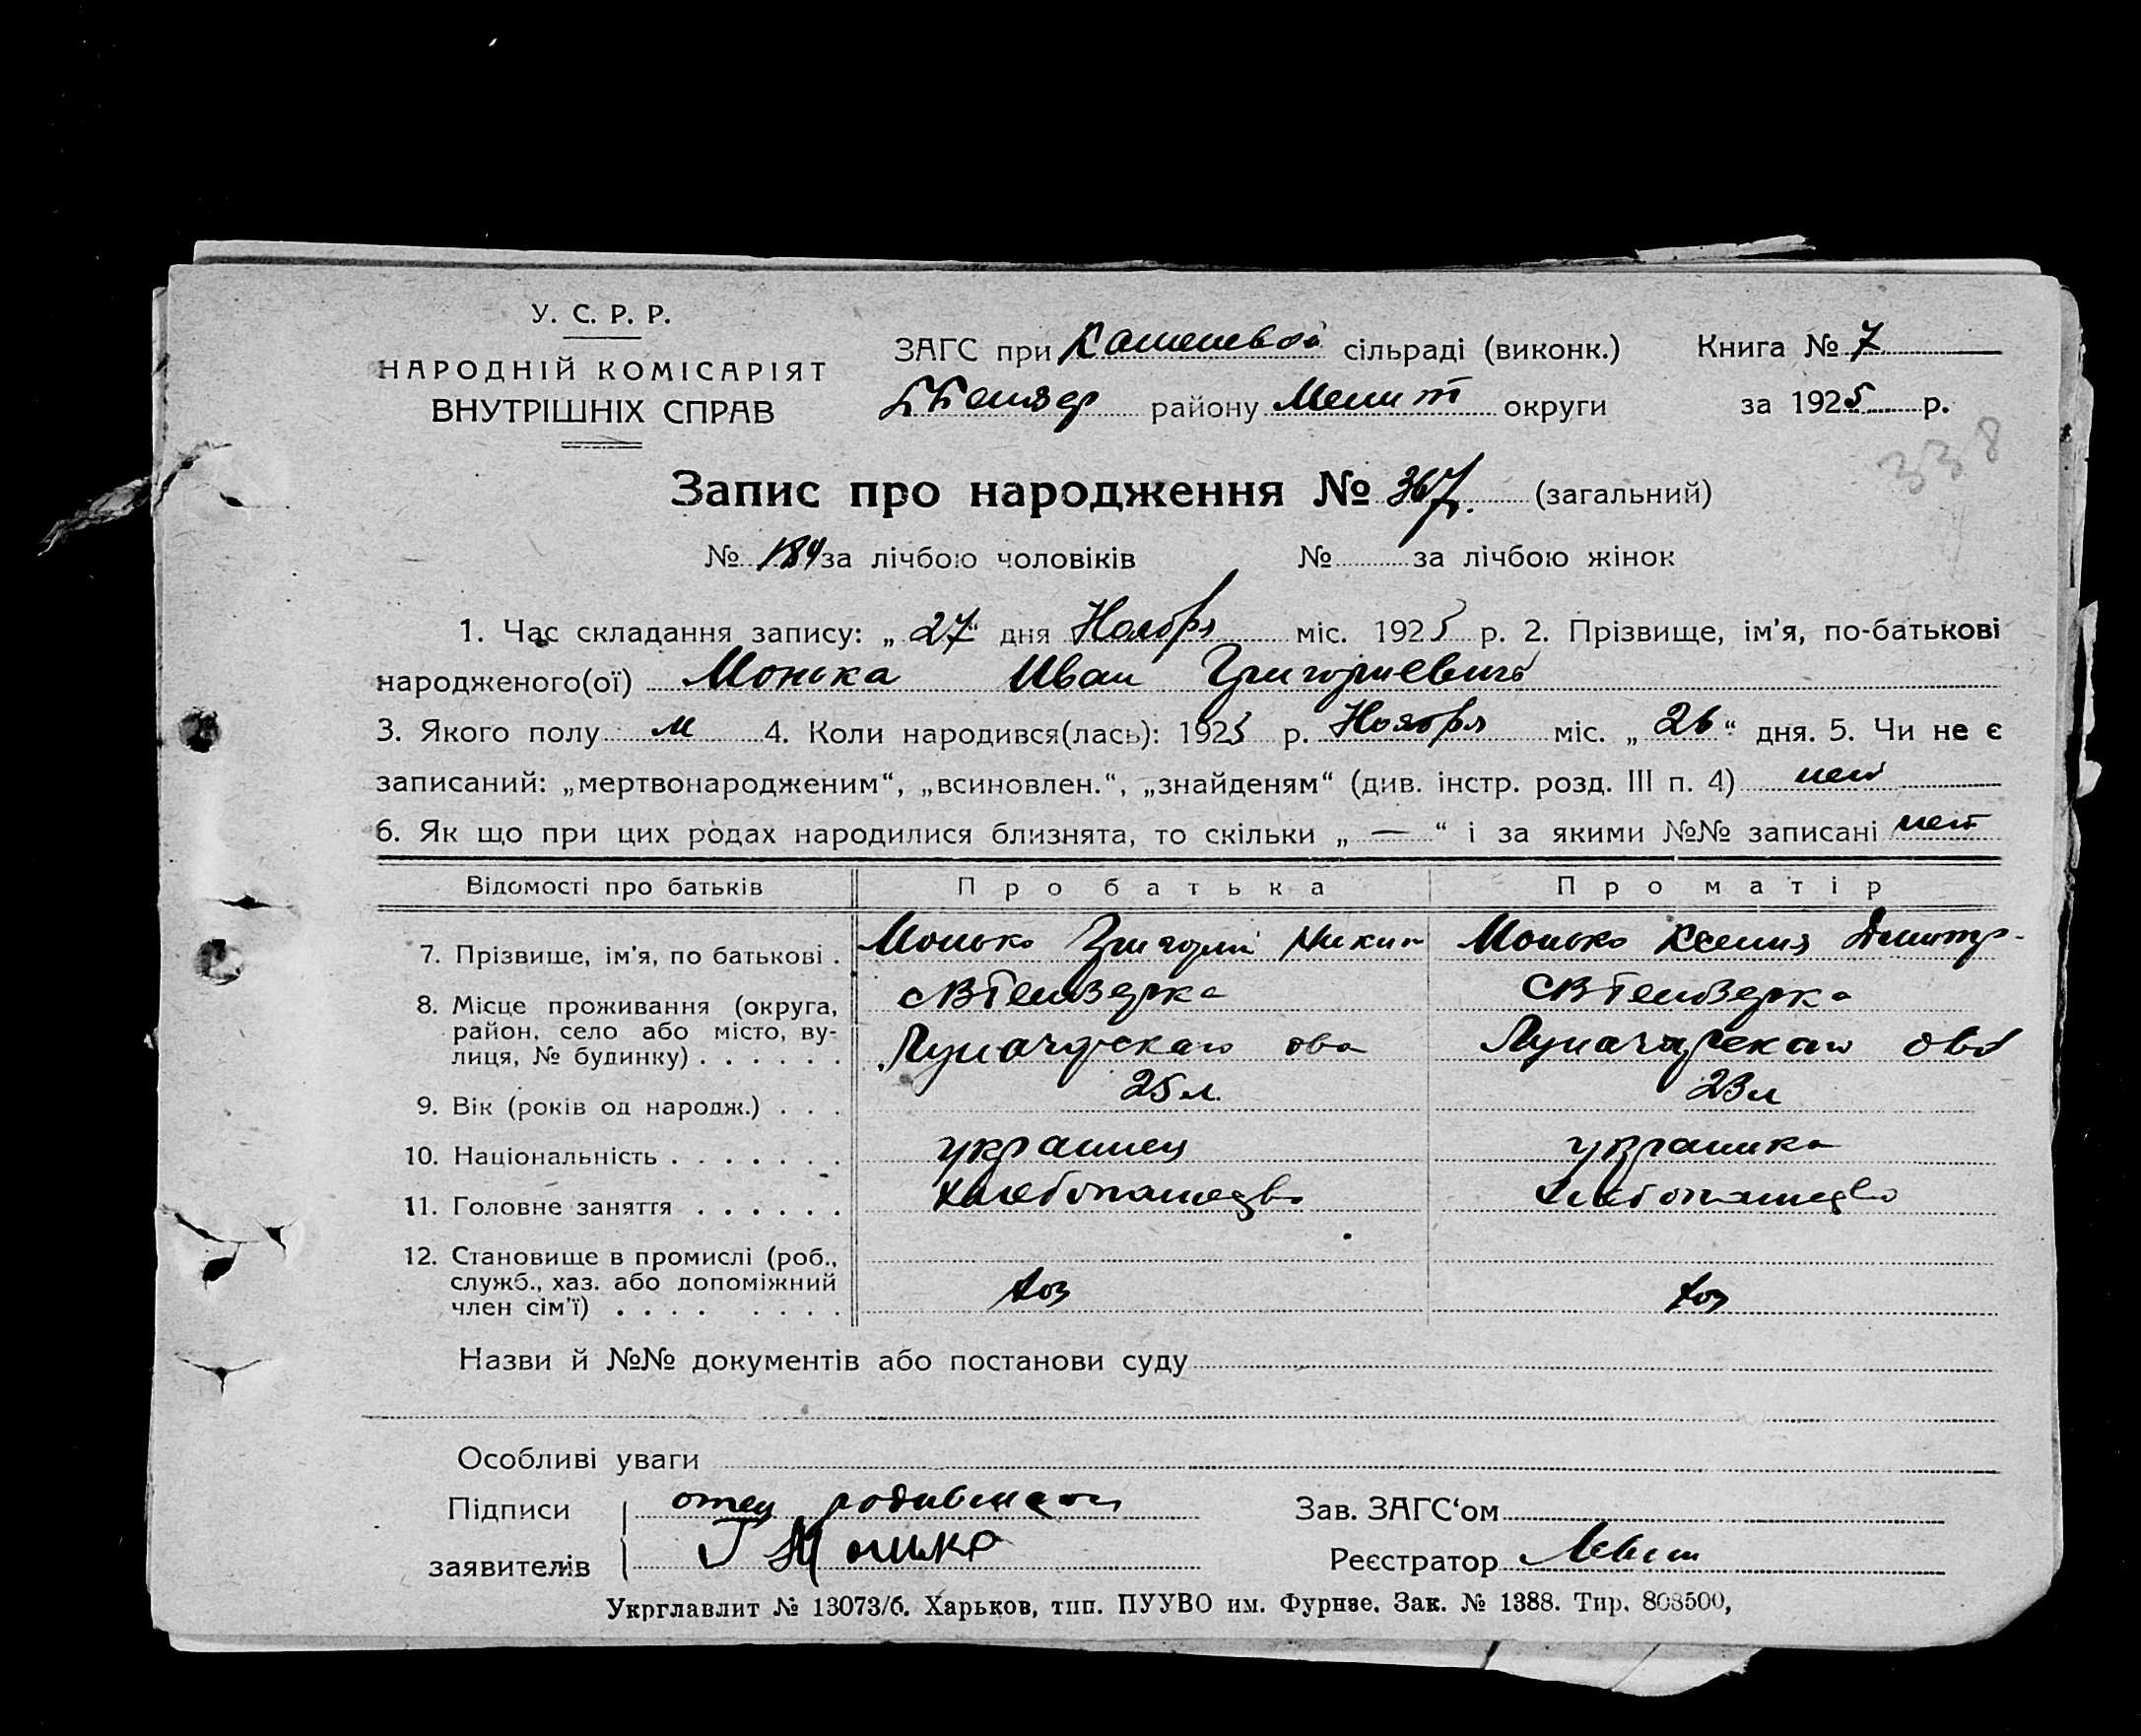 У. С. Р. Р.
НАРОДНІЙ КОМІСАРІЯТ
ВНУТРІШНІХ СПРАВ
ЗАГС при сільраді (виконк.) Книга № 7
району Мелит округи за 1925 р.
338
Запис про народження № 367. (загальний)
№ 184 за лічбою чоловіків № за лічбою жінок
1. Час складання запису: „ 27 “ дня Ноября міс. 1925 р. 2. Прізвище, ім'я, по-батькові
народженого(ої) Монька Иван Григориевич
3. Якого полу м 4. Коли народився(лась): 1925 р. Ноября міс. „ 26 “ дня. 5. Чи не є
записаний: „мертвонародженим“, „всиновлен.“, „знайденям“ (див. інстр. розд. III п. 4) нет
6. Як що при цих родах народилися близнята, то скільки „ — “ і за якими №№ записані нет
Відомості про батьків Про батька Про матір
7. Прізвище, ім'я, по батькові . Монько Григорий Никит Монько Ксения Дмитр-
8. Місце проживання (округа,
район, село або місто, ву-
лиця, № будинку) . . . . . .
Луначарскаго ова Луначарскаго ова
9. Вік (років од народж.) . . . 25 л. 23 л
10. Національність . . . . . . . украинец украинка
11. Головне заняття . . . . . . хлебопашедво хлебопашедво
12. Становище в промислі (роб.,
служб., хаз. або допоміжний
член сім'ї) . . . . . . . . хоз хоз
Назви й №№ документів або постанови суду
Особливі уваги
Підписи отец Зав. ЗАГС‘ом
заявителів Г Монько Реєстратор
Укрглавлит № 13073/б. Харьков, тип. ПУУВО им. Фурнзе. Зак. № 1388. Тир. 803500,